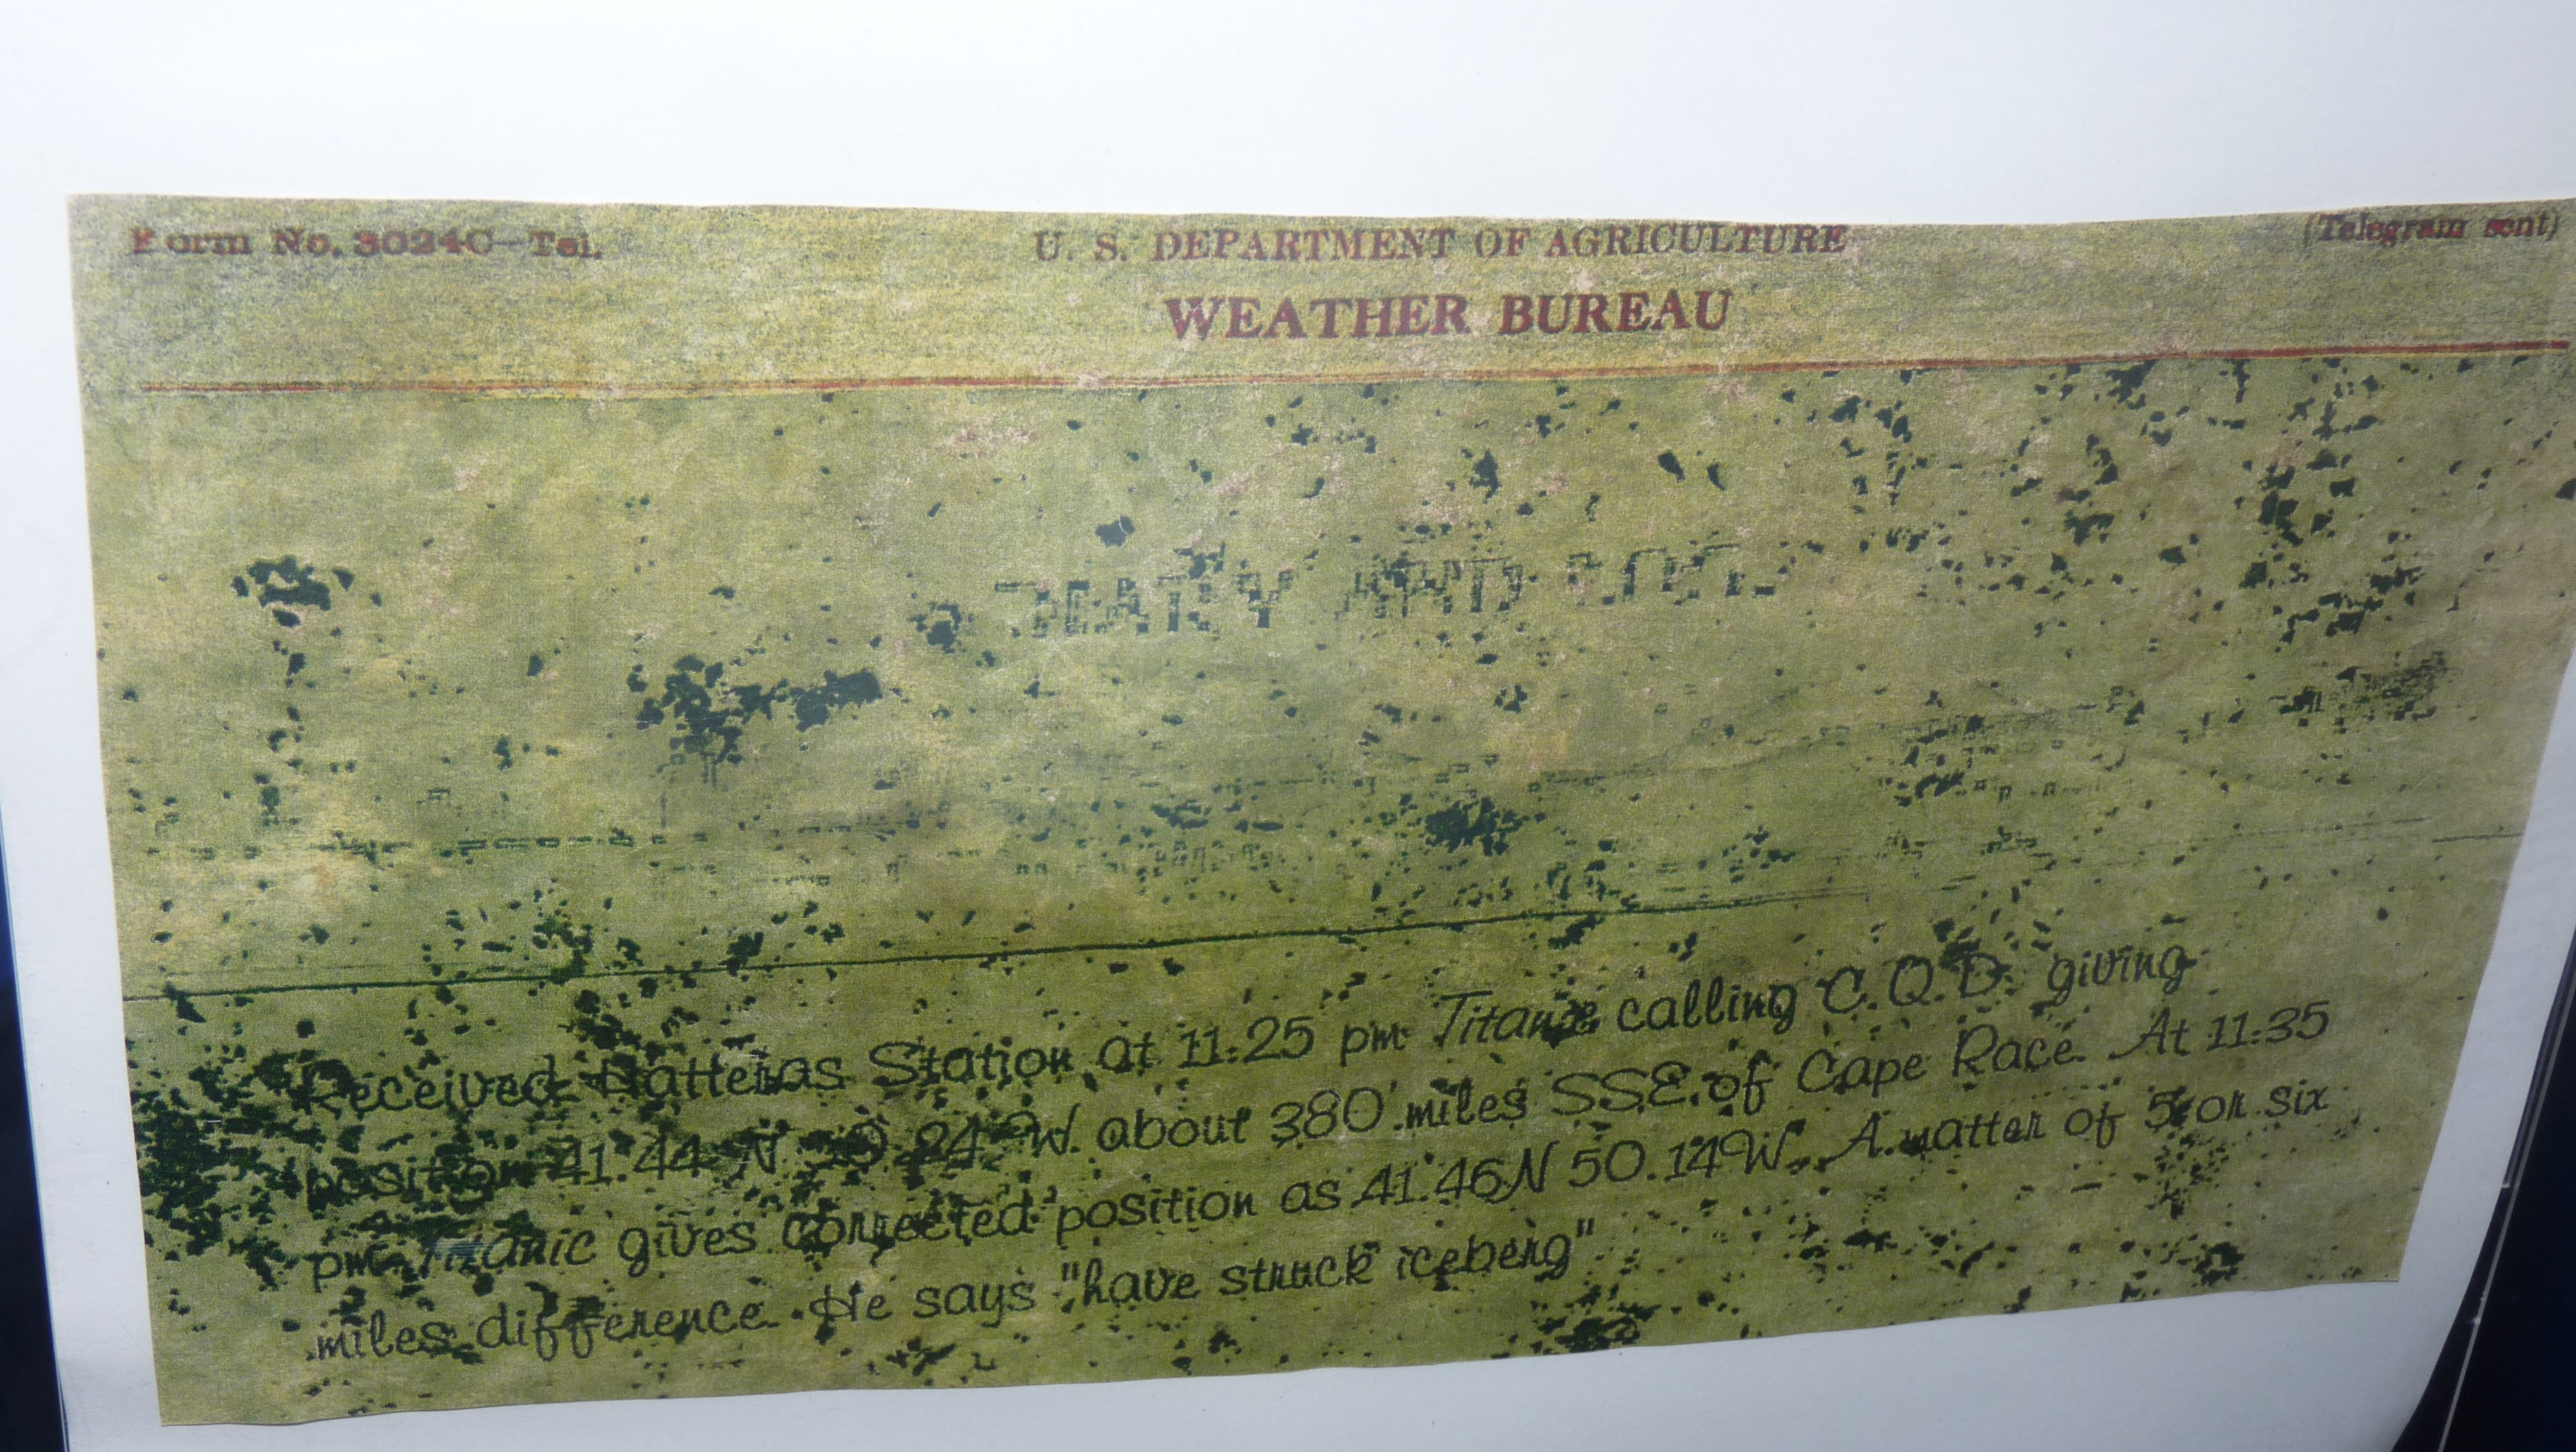 Form No. 3024C—Tel.
U. S. DEPARTMENT OF AGRICULTURE
(Telegram sent)
WEATHER BUREAU
AND
Received Hatteras Station at 11:25 pm Titanic calling C.Q.D. giving
position 41.44 N 24 W. about 380 miles SSE of Cape Race. At 11:35
pm Titanic gives corrected position as 41.46N 50.14W. A matter of 5 or six
miles difference. He says "have struck iceberg"